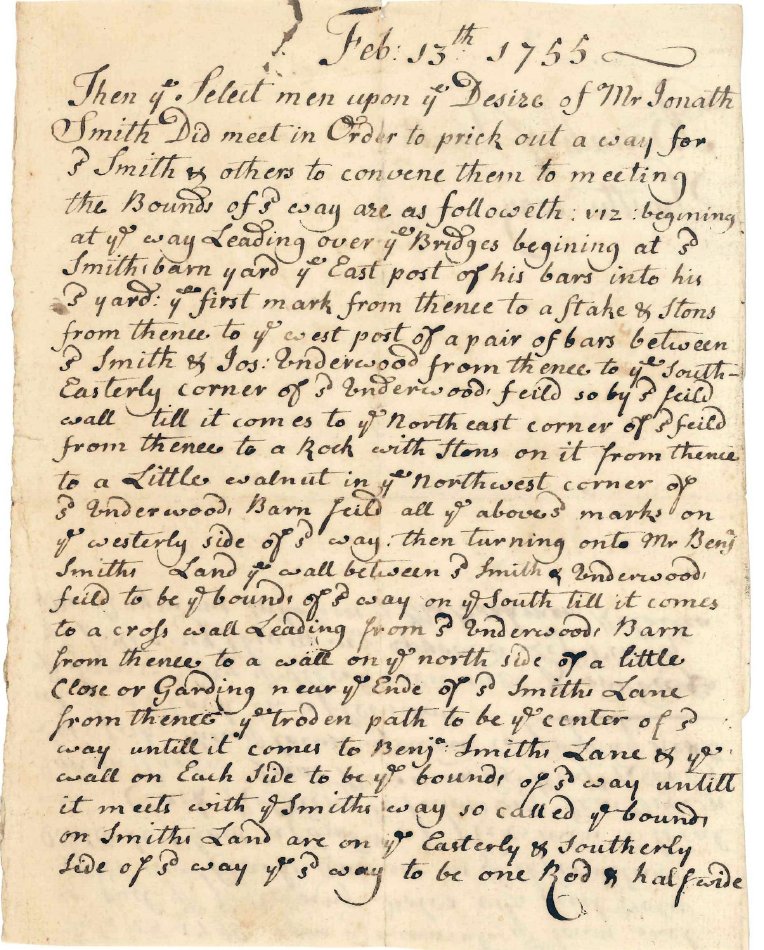 Feb: 13th 1755
Then ye Select men upon ye Desire of Mr Jonath
Smith Did meet in Order to prick out a way for
sd Smith & others to convene them to meeting
the Bounds of sd way are as followeth: viz: begining
at ye way Leading over ye Bridges begining at sd
Smiths barn yard ye East post of his bars into his
sd yard: ye first mark from thence to a Stake & Stons
from thence to ye west post of a pair of bars between
sd Smith & Jos: Underwood from thence to ye South-
Easterly corner of sd Underwoods feild so by sd feild
wall till it comes to ye North east corner of sd feild
from thence to a Rock with Stons on it from thence
to a Little walnut in ye Northwest corner of
sd Underwoods Barn feild all ye above sd marks on
ye westerly side of sd way: then turning onto Mr Benj
Smiths Land ye wall between sd Smith & Underwoods
feild to be ye bounds of sd way on ye South till it comes
to a cross wall Leading from sd Underwoods Barn
from thence to a wall on ye north side of a little
Close or Garding near ye Ende of sd Smiths Lane
from thence ye troden path to be ye center of sd
way untill it comes to Benja Smiths Lane & ye
wall on Each Side to be ye bounds of sd way untill
it meets with ye Smiths way so called ye bounds
on Smiths Land are on ye Easterly & Southerly
Side of sd way ye sd way to be one Rod & half wide